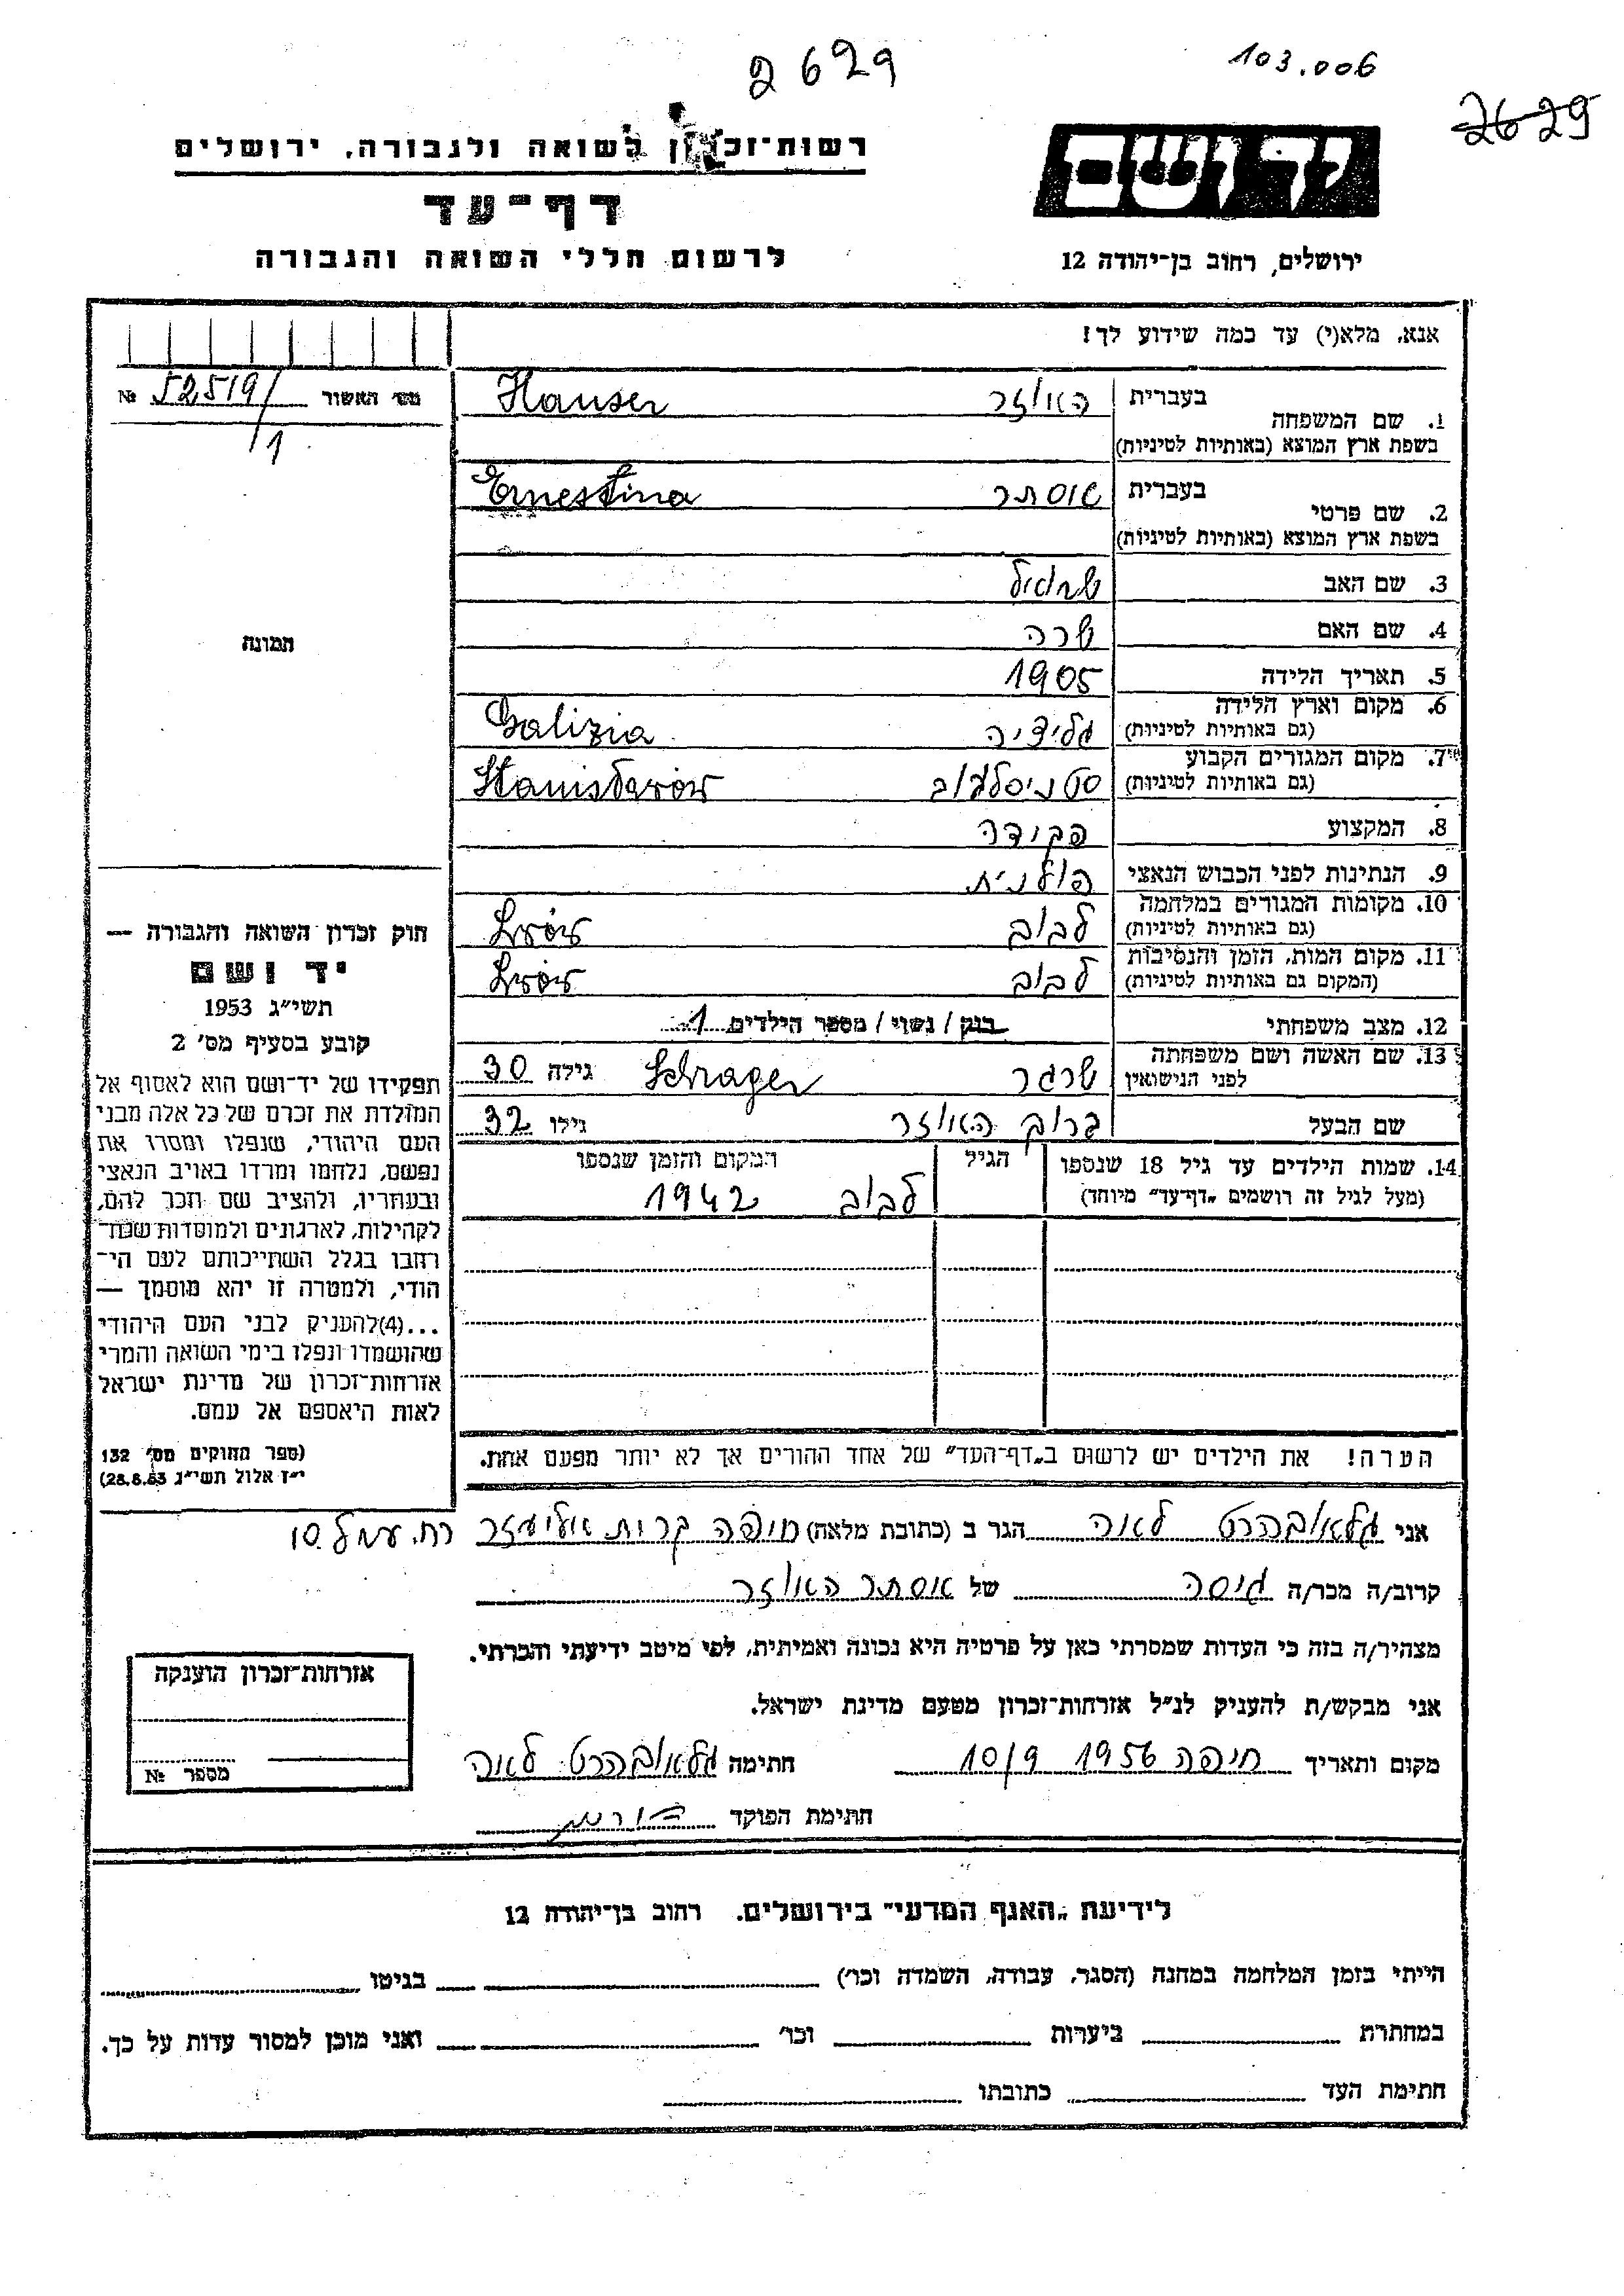 2629
103.006
2629
רשות־זכרון לשואה ולגבורה, ירושלים
דף־עד
לרשום חללי השואה והגבורה
יד ושם
ירושלים, רחוב בן־יהודה 12
אנא, מלא(י) עד כמה שידוע לך!
מס׳ האשור 52519/1 №
1. שם המשפחה בעברית האוזר Hauser
בשפת ארץ המוצא (באותיות לטיניות)
2. שם פרטי בעברית אסתר Ernestina
בשפת ארץ המוצא (באותיות לטיניות)
3. שם האב
4. שם האם שרה
5. תאריך הלידה 1905
6. מקום וארץ הלידה גליציה Galizia
(גם באותיות לטיניות)
7. מקום המגורים הקבוע סטניסלבוב Stanisławów
(גם באותיות לטיניות)
8. המקצוע פקידה
9. הנתינות לפני הכבוש הנאצי פולנית
10. מקומות המגורים במלחמה לבוב Lwów
(גם באותיות לטיניות)
11. מקום המות, הזמן והנסיבות לבוב Lwów
(המקום גם באותיות לטיניות)
12. מצב משפחתי רווק / נשוי / מספר הילדים 1
13. שם האשה ושם משפחתה לפני הנישואין שרגר Schrager גילה 30
שם הבעל ברוך האוזר גילו 32
14. שמות הילדים עד גיל 18 שנספו הגיל המקום והזמן שנספו
(מעל לגיל זה רושמים „דף־עד״ מיוחד) לבוב 1942
תמונה
חוק זכרון השואה והגבורה —
יד ושם
תשי״ג 1953
קובע בסעיף מס׳ 2
תפקידו של יד־ושם הוא לאסוף אל
המולדת את זכרם של כל אלה מבני
העם היהודי, שנפלו ומסרו את
נפשם, נלחמו ומרדו באויב הנאצי
ובעוזריו, ולהציב שם וזכר להם,
לקהילות, לארגונים ולמוסדות שנח־
רחבו בגלל השתייכותם לעם הי־
הודי, ולמטרה זו יהא מוסמך —
...(4)להעניק לבני העם היהודי
שהושמדו ונפלו בימי השואה והמרי
אזרחות־זכרון של מדינת ישראל
לאות היאספם אל עמם.
(ספר החוקים מס׳ 132
י״ז אלול תשי״ג 28.8.53)
הערה! את הילדים יש לרשום ב„דף־העד״ של אחד ההורים אך לא יותר מפעם אחת.
אני גלאוברהט לאה הגר ב (כתובת מלאה) חיפה קרית אליעזר רח. עמל 10
קרוב/ה מכר/ה גיסה של אסתר האוזר
מצהיר/ה בזה כי העדות שמסרתי כאן על פרטיה היא נכונה ואמיתית, לפי מיטב ידיעתי והכרתי.
אני מבקש/ת להעניק לנ״ל אזרחות־זכרון מטעם מדינת ישראל.
מקום ותאריך חיפה 1956 10/9 חתימה גלאוברהט לאה
חתימת הפוקד
אזרחות־זכרון הוענקה
מספר №
לידיעת „האגף המדעי״ בירושלים. רחוב בן־יהודה 12
הייתי בזמן המלחמה במחנה (הסגר, עבודה, השמדה וכו׳) בגיטו
במחתרת ביערות וכו׳ ואני מוכן למסור עדות על כך.
חתימת העד כתובתו